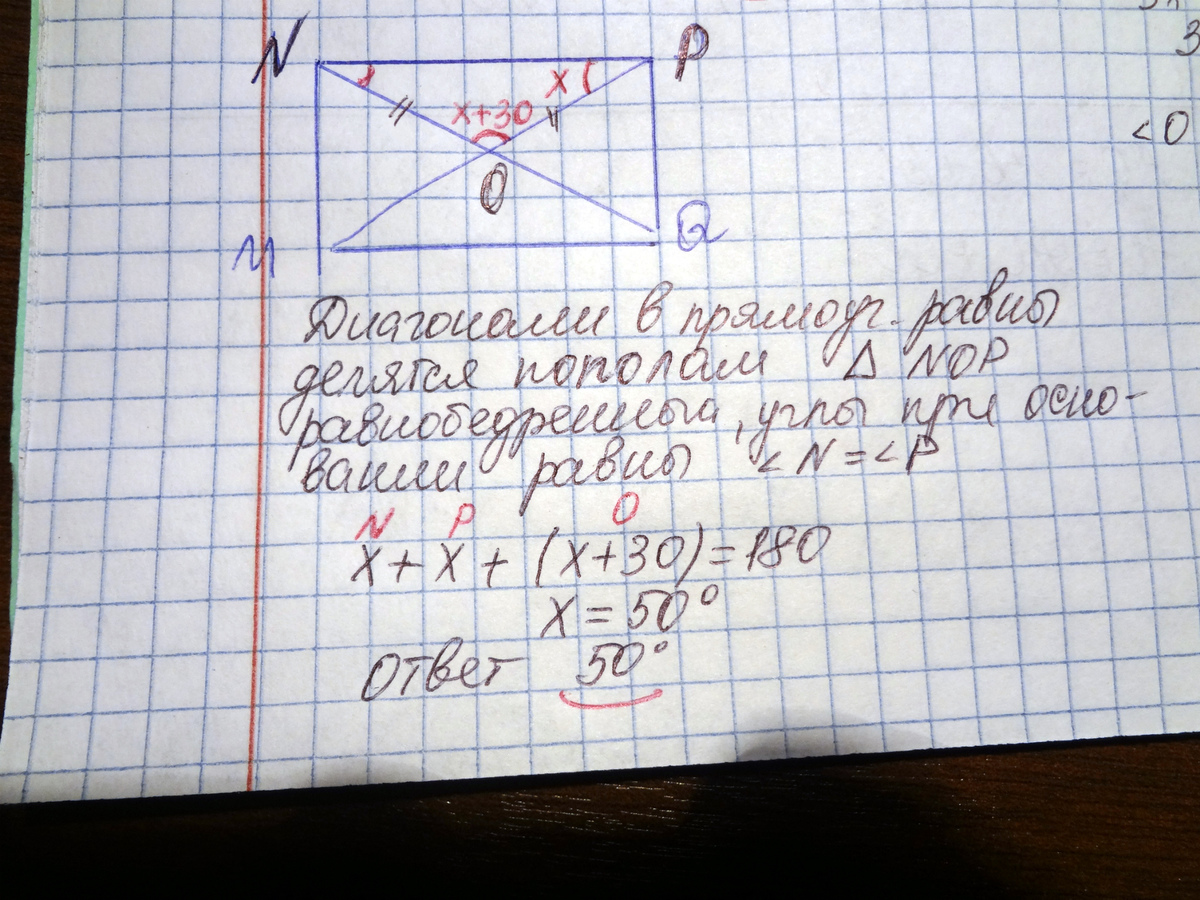 N P
x
x+30
O
M Q
3
<O
Диагонали в прямоуг. равны
делятся пополам Δ NOP
равнобедренный, углы при осно-
вании равны <N=<P
N P O
x + x + (x+30)=180
x = 50°
Ответ 50°